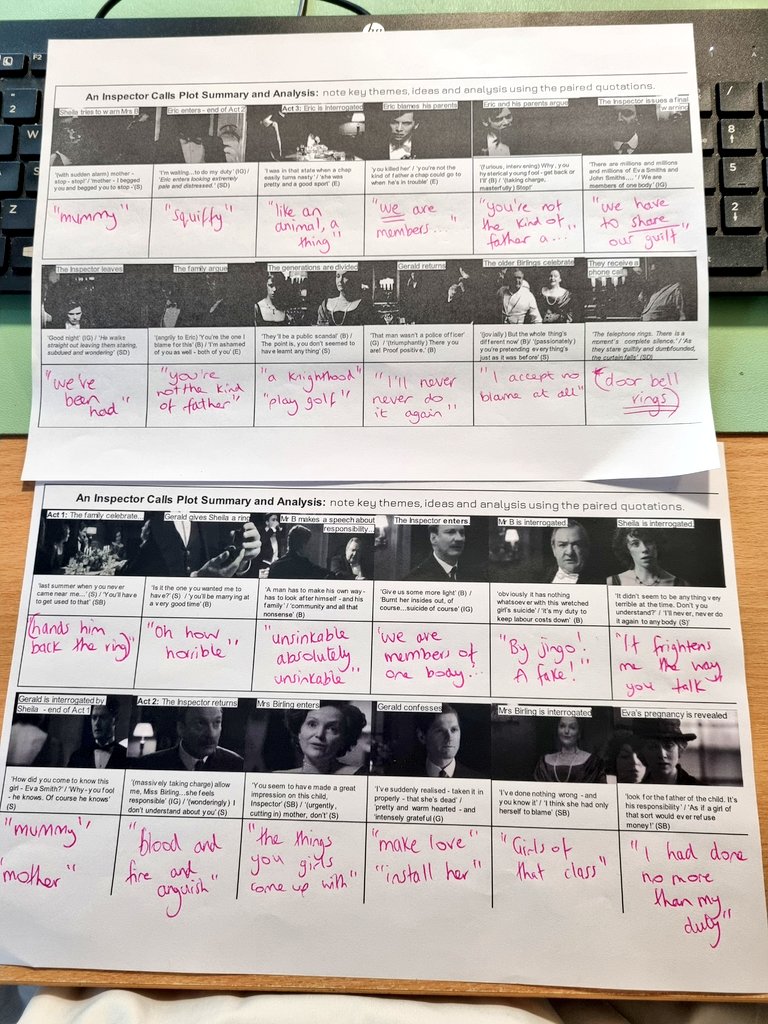 hp
F2
2
W
S
Z
/
8
5
2
An Inspector Calls Plot Summary and Analysis: note key themes, ideas and analysis using the paired quotations.
Sheila tries to warn Mrs B
'(with sudden alarm) mother -
stop - stop!' / 'mother - I begged
you and begged you to stop -'(S)
"mummy"
Eric enters - end of Act 2
'I'm waiting...to do my duty' (IG) /
'Eric enters looking extremely
pale and distressed.' (SD)
"squiffy"
Act 3: Eric is Interrogated
'I was in that state when a chap
easily turns nasty' / 'she was
pretty and a good sport' (E)
"like an
animal, a
thing"
Eric blames his parents
'you killed her' / 'you're not the
kind of father a chap could go to
when he's in trouble' (E)
"we are
members..."
Eric and his parents argue
'(furious, intervening) Why, you
hysterical young fool - get back or
I'll' (B) / '(taking charge,
masterfully) Stop!'
"you're not
the kind of
father a..."
The Inspector issues a final
warning
'There are millions and millions
and millions of Eva Smiths and
John Smiths.... ' / We are
members of one body' (IG)
"we have
to share
our guilt"
The Inspector leaves
'Good night' (IG) / 'He walks
straight out leaving them staring,
subdued and wondering' (SD)
"we've
been
had"
The family argue
'(angrily to Eric) You're the one I
blame for this' (B) / 'I'm ashamed
of you as well - both of you' (E)
"you're
not the kind
of father"
The generations are divided
'They'll be a public scandal' (B) /
The point is, you don't seemed to
have learnt anything' (S)
"a knighthood"
"play golf"
Gerald returns
'That man wasn't a police officer'.
(G) / '(triumphantly) There you
are! Proof positive.' (B)
"I'll never
never do
it again"
The older Birlings celebrate
'(jovially) But the whole thing's
different now' (B)/ '(passionately)
you're pretending everything's
just as it was before' (S)
"I accept no
blame at all"
They receive a
phone call
'The telephone rings. There is a
moment's complete silence.' / 'As
they stare guiltily and dumbfounded,
the curtain falls' (SD)
(door bell
rings)
An Inspector Calls Plot Summary and Analysis: note key themes, ideas and analysis using the paired quotations.
Act 1: The family celebrate...
'last summer when you never
came near me...' (S) / 'You'll have
to get used to that' (SB)
(hands him
back the ring)
Gerald gives Sheila a ring
'Is it the one you wanted me to
have?' (S) / 'you'll be marrying at
a very good time' (B)
"Oh how
horrible"
Mr B makes a speech about
responsibility...
'A man has to make his own way -
has to look after himself - and his
family' / 'community and all that
nonsense' (B)
"unsinkable
absolutely
unsinkable"
The Inspector enters
'Give us some more light' (B) /
'Burnt her insides out, of
course...suicide of course' (IG)
'we are
members of
one body...
Mr B is interrogated.
'obviously it has nothing
whatsoever with this wretched
girl's suicide' / 'it's my duty to
keep labour costs down' (B)
"By jingo!
A fake!"
Sheila is interrogated.
'It didn't seem to be anything very
terrible at the time. Don't you
understand?' / 'I'll never, never do
it again to anybody (S)'
"It frightens
me the way
you talk"
Gerald is interrogated by
Sheila - end of Act 1
'How did you come to know this
girl - Eva Smith?' / 'Why - you fool
- he knows. Of course he knows'
(S)
"mummy"
mother"
Act 2: The Inspector returns
'(massively taking charge) allow
me, Miss Birling...she feels
responsible' (IG) / '(wonderingly) I
don't understand about you' (S)
"blood and
fire and
anguish"
Mrs Birling enters
'You seem to have made a great
impression on this child,
Inspector' (SB) / '(urgently,
cutting in) mother, don't' (S)
"the things
you girls
come up with"
Gerald confesses
'I've suddenly realised - taken it in
properly - that she's dead' /
'pretty and warm hearted - and
intensely grateful (G)
"make love"
"install her"
Mrs Birling is interrogated
'I've done nothing wrong - and
you know it' / 'I think she had only
herself to blame' (SB)
"Girls of
that class"
Eva's pregnancy is revealed
'look for the father of the child. It's
his responsibility' / 'As if a girl of
that sort would ever refuse
money!' (SB)
"I had done
no more
than my
duty"